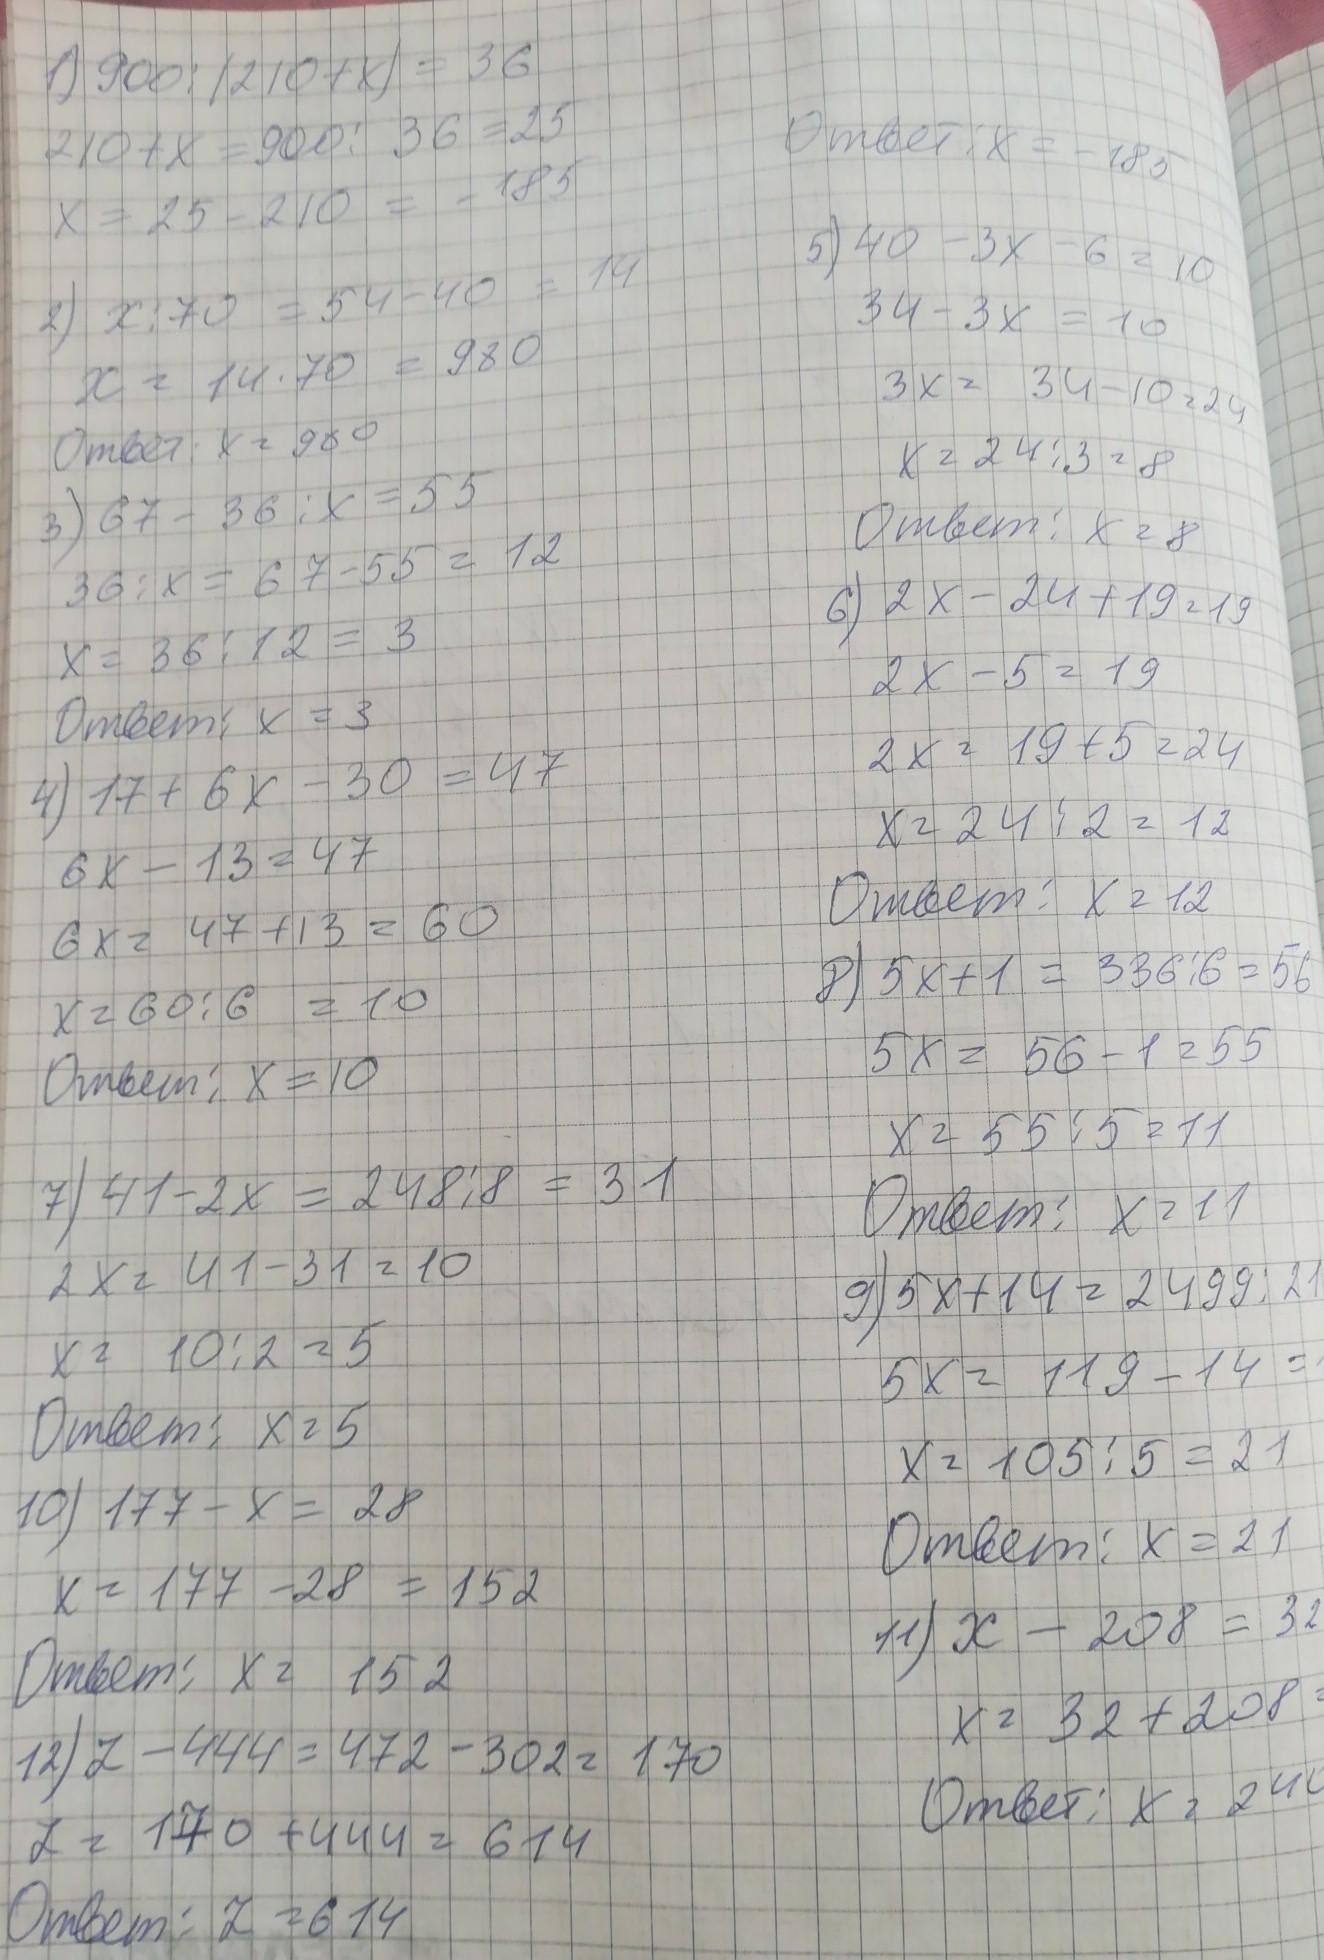 1) 900 : (210 + x) = 36
210 + x = 900 : 36 = 25
x = 25 - 210 = - 185
Ответ: x = - 185
2) x : 70 = 54 - 40 = 14
x = 14 · 70 = 980
Ответ: x = 980
3) 67 - 36 : x = 55
36 : x = 67 - 55 = 12
x = 36 : 12 = 3
Ответ: x = 3
4) 17 + 6x - 30 = 47
6x - 13 = 47
6x = 47 + 13 = 60
x = 60 : 6 = 10
Ответ: x = 10
5) 40 - 3x - 6 = 10
34 - 3x = 10
3x = 34 - 10 = 24
x = 24 : 3 = 8
Ответ: x = 8
6) 2x - 24 + 19 = 19
2x - 5 = 19
2x = 19 + 5 = 24
x = 24 : 2 = 12
Ответ: x = 12
7) 41 - 2x = 248 : 8 = 31
2x = 41 - 31 = 10
x = 10 : 2 = 5
Ответ: x = 5
8) 5x + 1 = 336 : 6 = 56
5x = 56 - 1 = 55
x = 55 : 5 = 11
Ответ: x = 11
9) 5x + 14 = 2499 : 21
5x = 119 - 14 =
x = 105 : 5 = 21
Ответ: x = 21
10) 177 - x = 28
x = 177 - 28 = 152
Ответ: x = 152
11) x - 208 = 32
x = 32 + 208 =
Ответ: x = 240
12) z - 444 = 472 - 302 = 170
z = 170 + 444 = 614
Ответ: z = 614